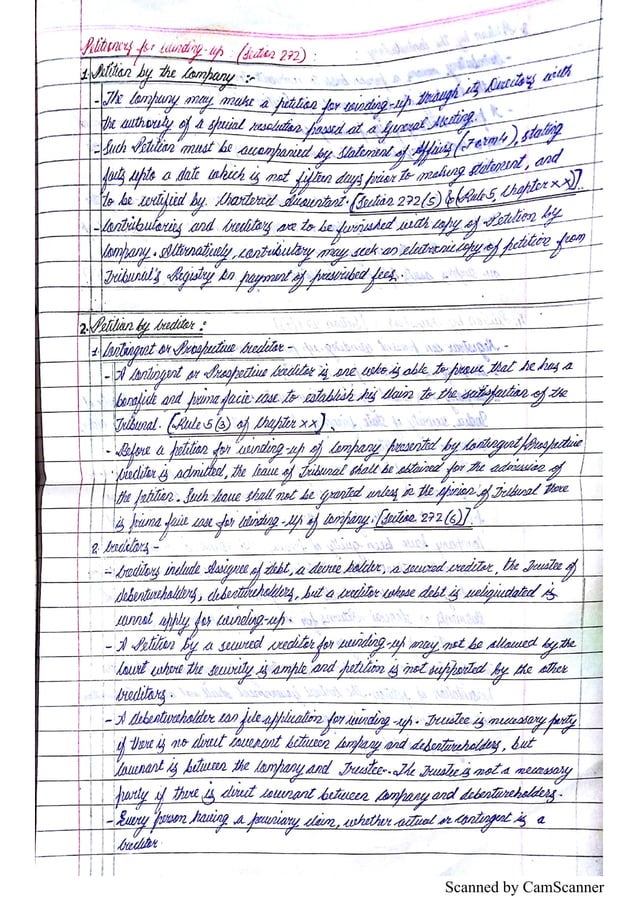 Petitioners for Winding-up: (Section 272):
1. Petition by the Company :-
- The Company may make a petition for winding-up through its Directors with
the authority of a special resolution passed at a General Meeting.
- Such Petition must be accompanied by Statement of Affairs (Form 4), stating
facts upto a date which is not fifteen days prior to making statement, and
to be certified by Chartered Accountant. [Section 272(5) & (Rule 5, Chapter XX)]
- Contributories and Creditors are to be furnished with copy of Petition by
Company. Alternatively, contributory may seek an electronic copy of petition from
Tribunal's Registry on payment of prescribed fees.
2. Petition by Creditor :
1. Contingent or Prospective Creditor -
- A Contingent or Prospective Creditor is one who is able to prove that he has a
bonafide and prima facie case to establish his claim to the satisfaction of the
Tribunal. [Rule 5(3) of Chapter XX].
- Before a petition for winding-up of Company presented by Contingent/Prospective
Creditor is admitted, the leave of Tribunal shall be obtained for the admission of
the petition. Such leave shall not be granted unless in the opinion of Tribunal there
is prima facie case for winding-up of company. [Section 272(6)].
2. Creditors -
- Creditors include Assignee of debt, a decree holder, a secured creditor, the Trustee of
debentureholders, debentureholders, but a creditor whose debt is unliquidated is
cannot apply for winding-up.
- A Petition by a secured creditor for winding-up may not be allowed by the
Court where the security is ample and petition is not supported by the other
Creditors
- A debentureholder can file application for winding up. Trustee is necessary party
if there is no direct covenant between Company and debentureholders, but
Covenant is between the Company and Trustee. The Trustee is not a necessary
party if there is direct covenant between Company and debentureholders.
- Every person having a pecuniary claim, whether actual or contingent is a
Creditor
Scanned by CamScanner